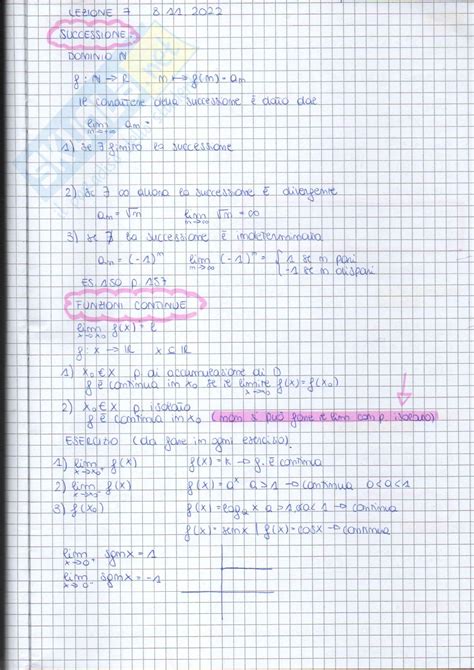 LEZIONE 7 8.11.2022
SUCCESSIONE:
DOMINIO N
f: N → R m ↦ f(m) = am
Il carattere della successione è dato dal
lim m→+∞ am =
1) se ∃ finito la successione
2) se ∃ ∞ allora la successione è divergente
am = √m lim m→∞ √m = ∞
3) se ∄ la successione è indeterminata
am = (-1)^m lim m→∞ (-1)^m = { 1 se m pari
-1 se m dispari
ES. 150 p. 157
FUNZIONI CONTINUE
lim x→x₀ f(x) = l
f: X → R X ⊆ R
1) x₀ ∈ X p. di accumulazione di D
f è continua in x₀ se il limite f(x) = f(x₀)
2) x₀ ∈ X p. isolato
f è continua in x₀ (non si può fare il lim con p. isolato)
ESERCIZIO (da fare in ogni esercizio).
1) lim x→x₀⁺ f(x) f(x) = k → f. è continua
2) lim x→x₀⁻ f(x) f(x) = a^x a>1 → continua 0<a<1
3) f(x₀) f(x) = log_a x a>1 0<a<1 → continua
f(x) = sen x / f(x) = cos x → continua
lim x→0⁺ sgn x = 1
lim x→0⁻ sgn x = -1